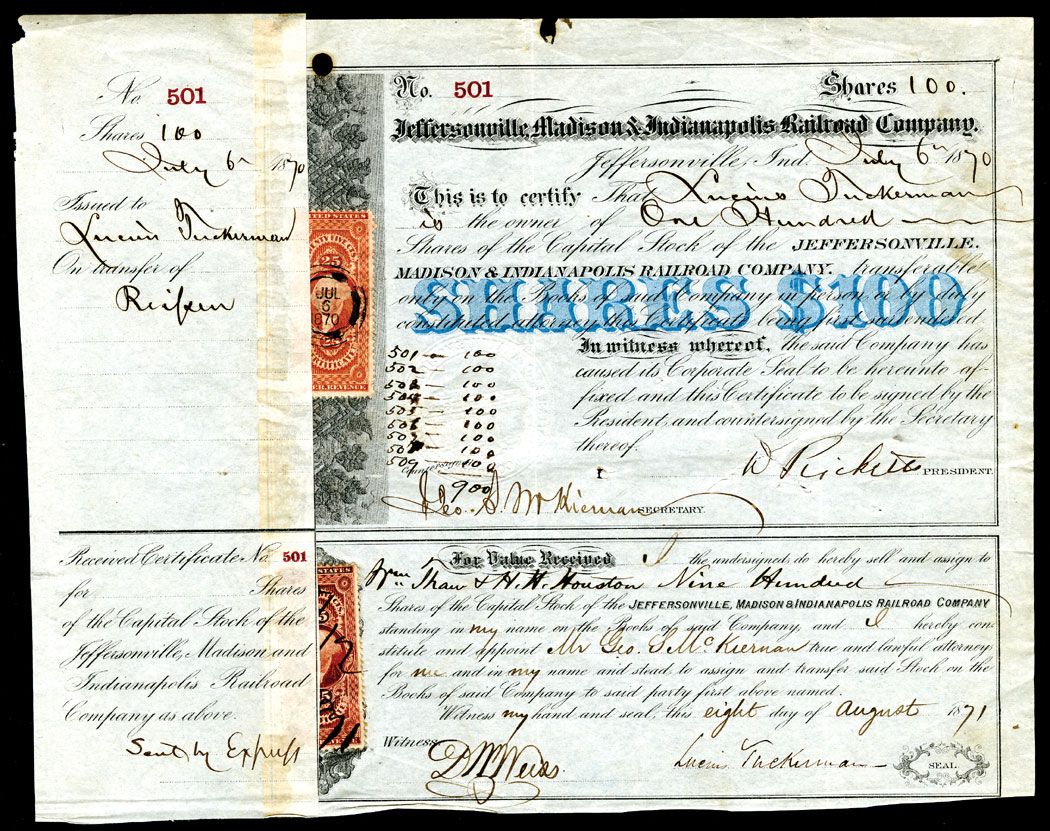 No. 501
Shares 100
July 6th 1870
Issued to
Lucius Tuckerman
On transfer of
Received Certificate No. 501
for Shares
of the Capital Stock of the
Jeffersonville, Madison and
Indianapolis Railroad
Company as above.
Sent by Express
No. 501 Shares 100.
Jeffersonville, Madison & Indianapolis Railroad Company.
Jeffersonville, Ind. July 6th 1870
This is to certify That Lucius Tuckerman
is the owner of One Hundred
Shares of the Capital Stock of the JEFFERSONVILLE.
MADISON & INDIANAPOLIS RAILROAD COMPANY. transferable
only on the Books of said Company in person or by duly
constituted attorney this Certificate being first surrendered.
SHARES $100
In witness whereof, the said Company has
caused its Corporate Seal to be hereunto af-
fixed and this Certificate to be signed by the
President, and countersigned by the Secretary
thereof.
501 — 100
502 — 100
503 — 100
504 — 100
505 — 100
506 — 100
507 — 100
508 — 100
509 — 100
900
W Ricketts PRESIDENT.
Geo. S. McKiernan SECRETARY.
UNITED STATES
25
JUL
6
1870
25
CERTIFICATE
INTER. REVENUE
For Value Received I the undersigned, do hereby sell and assign to
Wm Thaw & H. H. Houston Nine Hundred
Shares of the Capital Stock of the JEFFERSONVILLE, MADISON & INDIANAPOLIS RAILROAD COMPANY
standing in my name on the Books of said Company, and I hereby con-
stitute and appoint Mr Geo. S McKiernan true and lawful attorney
for me and in my name and stead to assign and transfer said Stock on the
Books of said Company to said party first above named.
Witness my hand and seal, this eight day of August 1871
Witness
Lucius Tuckerman SEAL.